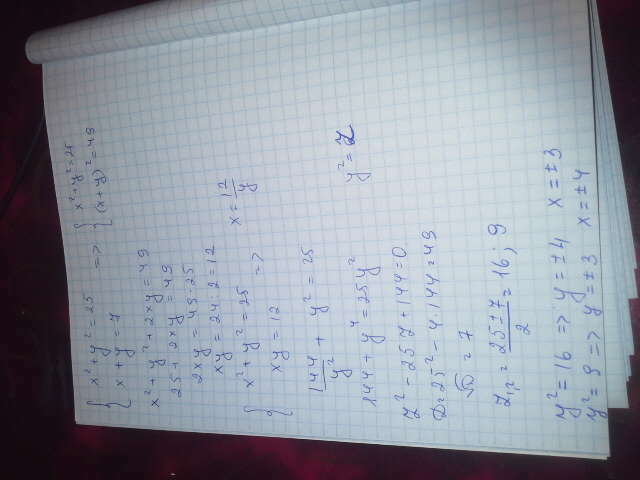 { x² + y² = 25 => { x² + y² = 25
x + y = 7 (x + y)² = 49
x² + y² + 2xy = 49
25 + 2xy = 49
2xy = 49 - 25
xy = 24 : 2 = 12
{ x² + y² = 25 => x = 12/y
xy = 12
144/y² + y² = 25
144 + y⁴ = 25y² y² = z
z² - 25z + 144 = 0
D = 25² - 4 · 144 = 49
√D = 7
z₁,₂ = (25 ± 7)/2 = 16; 9
y² = 16 => y = ±4 x = ±3
y² = 9 => y = ±3 x = ±4